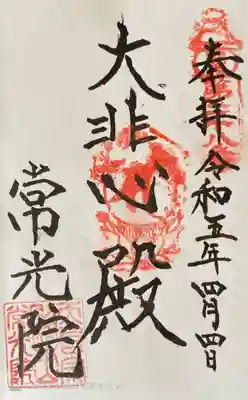 奉拝 令和五年四月四日
大悲心殿
常光院